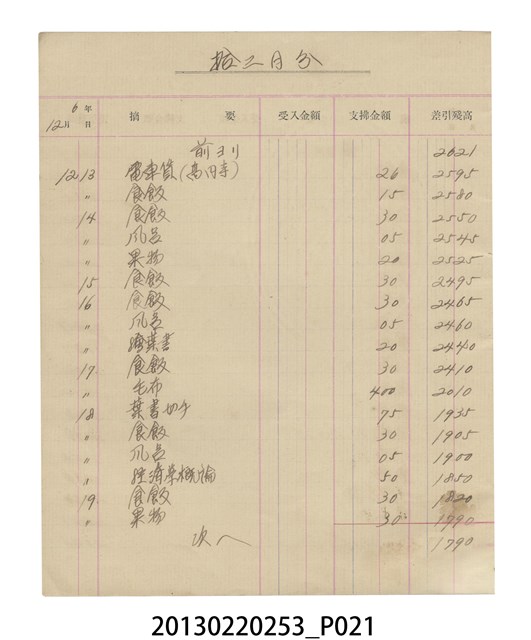 拾二月分
6年 12月 日 摘 要 受入金額 支拂金額 差引残高
前ヨリ 2621
12 13 電車賃(高円寺) 26 2595
〃 食飯 15 2580
14 食飯 30 2550
〃 風呂 05 2545
〃 果物 20 2525
15 食飯 30 2495
16 食飯 30 2465
〃 風呂 05 2460
〃 繪葉書 20 2440
17 食飯 30 2410
〃 毛布 400 2010
18 葉書切手 75 1935
〃 食飯 30 1905
〃 風呂 05 1900
〃 経済学概論 50 1850
19 食飯 30 1820
〃 果物 30 1790
次へ 1790
20130220253_P021